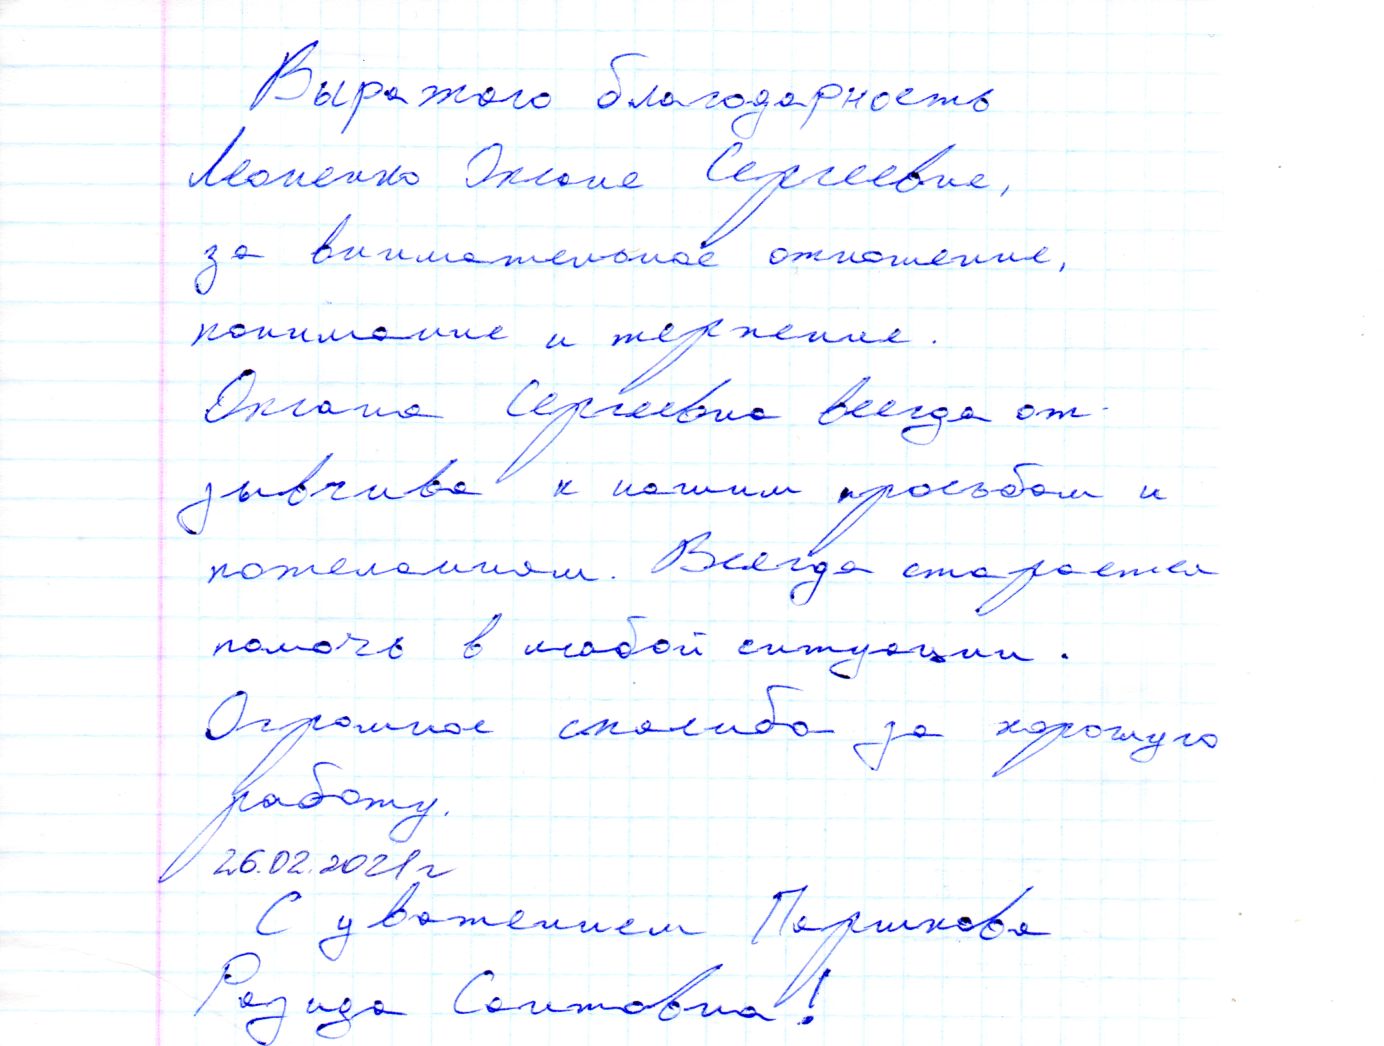 Выражаю благодарность
Леоненко Оксане Сергеевне,
за внимательное отношение,
понимание и терпение.
Оксана Сергеевна всегда от-
зывчива к нашим просьбам и
пожеланиям. Всегда старается
помочь в любой ситуации.
Огромное спасибо за хорошую
работу.
26.02.2021г
С уважением Паршкова
Разида Саитовна!